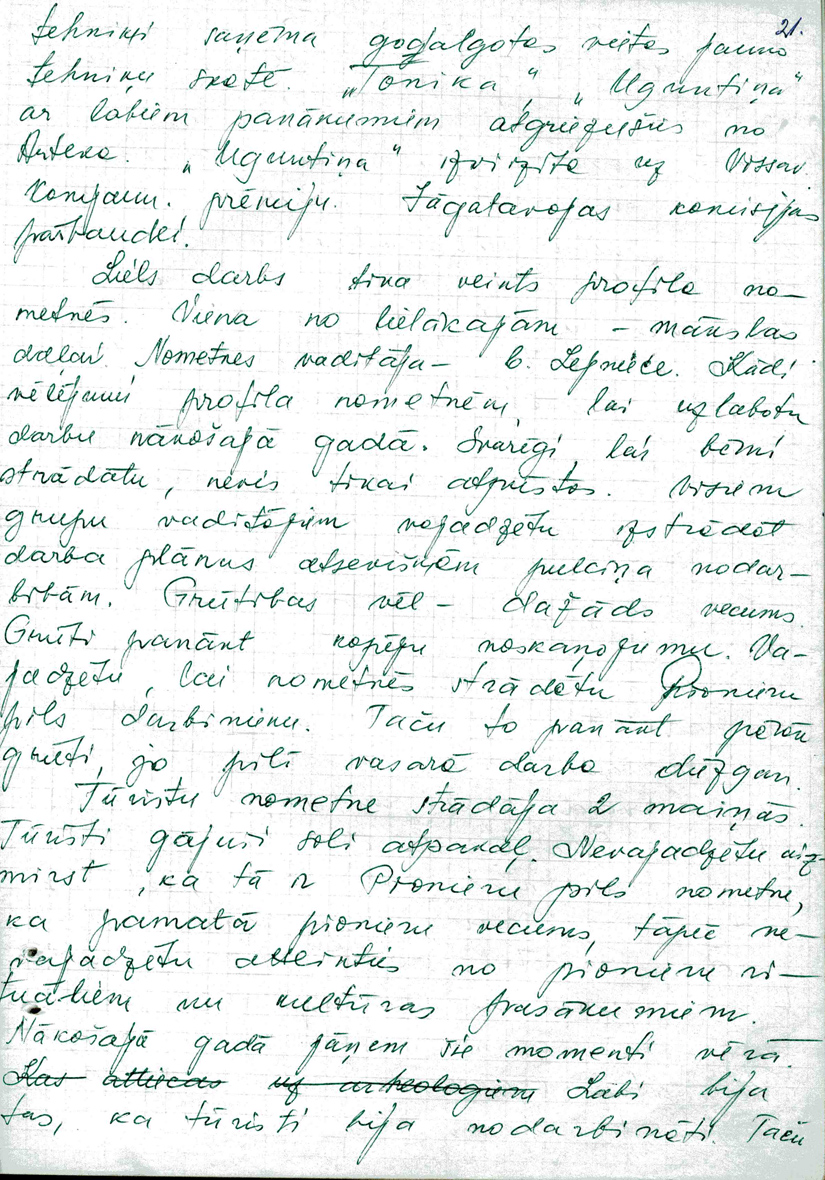 21.
tehniķi saņēma godalgotas vietas jauno
tehniķu skatē. „Tonika”, „Uguntiņa”
ar labiem panākumiem atgriezušies no
Arteka. „Uguntiņa” izvirzīta uz Vissav.
Komjaun. prēmiju. Jāgatavojas komisijas
pārbaudei.
Liels darbs tika veikts profila no-
metnēs. Viena no lielākajām – mākslas
daļai. Nometnes vadītāja – b. Lepniece. Kādi
vēlējumi profila nometnēm, lai uzlabotu
darbu nākošajā gadā. Svarīgi, lai bērni
strādātu, nevis tikai atpūstos. Visiem
grupu vadītājiem vajadzētu izstrādāt
darba plānus atsevišķām pulciņa nodar-
bībām. Grūtības vēl – dažāds vecums.
Grūti panākt kopēju noskaņojumu. Va-
jadzētu, lai nometnēs strādātu Pionieru
pils darbinieku. Taču to panākt pārāk
grūti, jo pilī vasarā darba diezgan.
Tūristu nometne strādāja 2 maiņās.
Tūristi gājuši soli atpakaļ. Nevajadzētu aiz-
mirst, ka tā ir Pionieru pils nometne,
ka pamatā pionieru vecums, tāpēc ne-
vajadzētu atteikties no pionieru ri-
tuāliem un kultūras pasākumiem.
Nākošajā gadā jāņem šie momenti vērā.
Kas attiecas uz arheologiem Labi bija
tas, ka tūristi bija nodarbināti. Taču